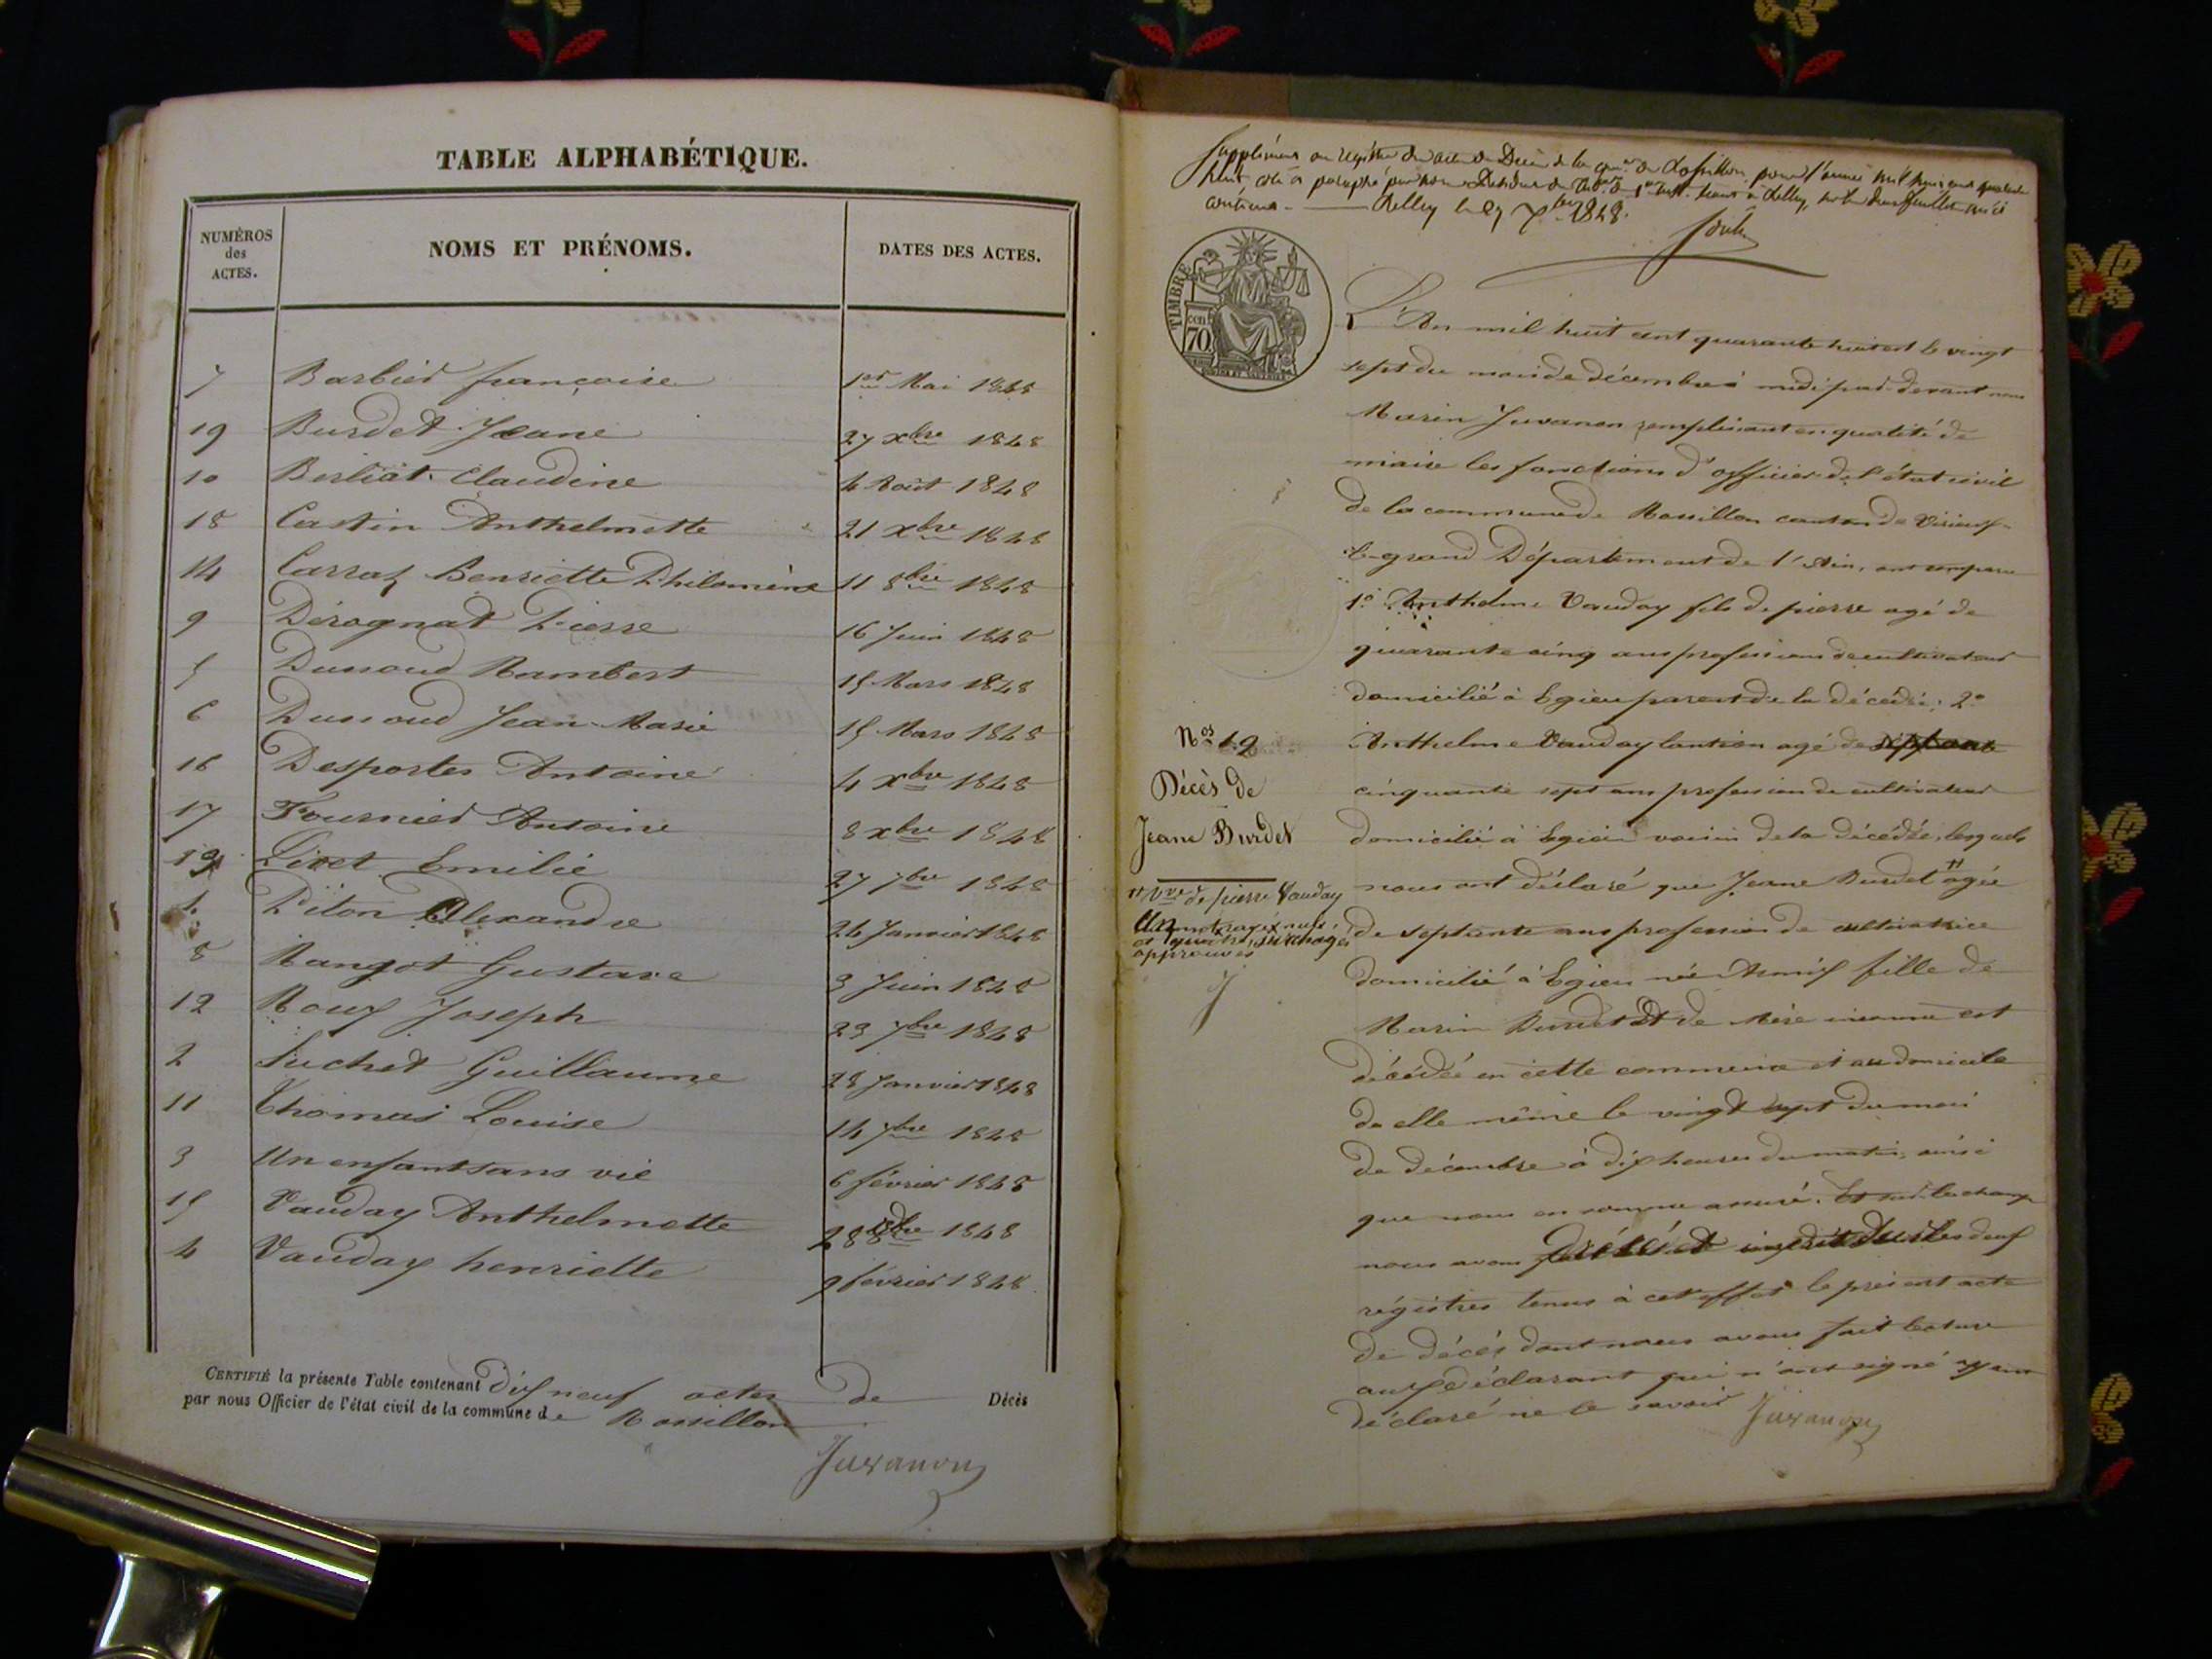 TABLE ALPHABÉTIQUE.
NUMÉROS des ACTES. NOMS ET PRÉNOMS. DATES DES ACTES.
7 Barbier françoise 1er Mai 1848
19 Burdet Jeane 27 xbre 1848
10 Berliat Claudine 4 Août 1848
18 Castin Anthelmette 21 xbre 1848
14 Carraz Benriette Philomène 11 8bre 1848
9 Dérognat Pierre 16 Juin 1848
5 Dussoud Rambert 15 Mars 1848
6 Dussoud Jean-Marie 15 Mars 1848
16 Desportes Antoine 4 xbre 1848
17 Fournier Antoine 8 xbre 1848
13 Livet Emilie 27 7bre 1848
1. Piton Alexandre 24 Janvier 1848
8 Rangot Gustave 3 Juin 1848
12 Roux Joseph 23 7bre 1848
2 Suchet Guillaume 28 Janvier 1848
11 Thomas Louise 14 7bre 1848
3 Un enfant sans vie 6 février 1848
15 Vauday Anthelmette 28 8bre 1848
4 Vauday henriette 9 février 1848
CERTIFIÉ la présente Table contenant Dix neuf actes de Décès
par nous Officier de l'état civil de la commune de Rossillon
Juvanon
Supplément au registre des actes de Décès de la de Rossillon, pour l'année mil huit cent quarante
huit coté et paraphé par nous Président du de 1ère inst. séant à Belley, sur les deux feuillets
contenu Belley le 27 1848.
TIMBRE
cen
70
L'An mil huit cent quarante huit et le vingt
sept du mois de décembre à midi par-devant nous
Marin Juvanon remplissant en qualité de
maire les fonctions d'officier de l'état civil
de la commune de Rossillon canton de Virieux-
le-grand Département de l'Ain, ont comparu
1º Anthelme Vauday fils de pierre agé de
quarante cinq ans profession de cultivateur
domicilié à Egieu parent de la décédée; 2º
Anthelme Vauday lantion agé de septante
cinquante sept ans profession de cultivateur
domicilié à Egieu voisin de la décédée, lesquels
nous ont déclaré que Jeane Burdet # agée
de septante ans profession de cultivatrice
domicilié à Egieu née Armix fille de
Marin Burdet et de Mère inconnue est
décédée en cette commune et au domicile
de elle même le vingt sept du mois
de décembre à dix heures du matin, ainsi
que nous en somme assuré. Et sur le champ
nous avons inscrit sur les deux
régistres tenus à cet effet le présent acte
de décés dont nous avons fait lecture
aux déclarant qui n'ont signé ayant
déclaré ne le savoir Juvanon
Nos 19
Décès de
Jeane Burdet
# Vve de pierre Vauday
Un mot rayé nul,
et quatre surchagés
approuvés
J